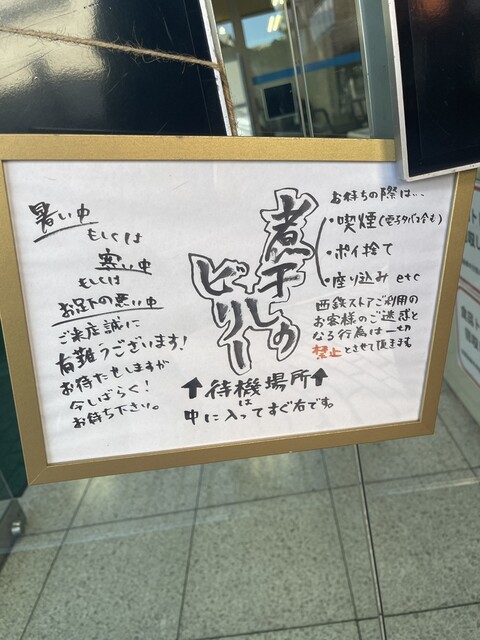 暑い中
もしくは
寒い中
もしくは
お足下の悪い中
ご来店誠に
有難うございます!
お待たせしますが
今しばらく!
お待ち下さい。
煮干しの
ビリー
↑待機場所↑
は
中に入ってすぐ右です。
お待ちの際は…
・喫煙(電子タバコ含む)
・ポイ捨て
・座り込み etc
西鉄ストアご利用の
お客様のご迷惑と
なる行為は一切
禁止とさせて頂きます